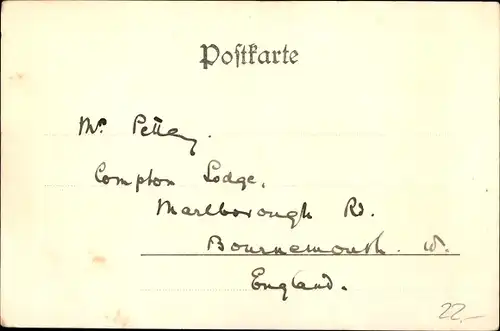 Postkarte
Mr Pettey.
Compton Lodge,
Marlborough Rd.
Bournemouth. W.
England.
22.-